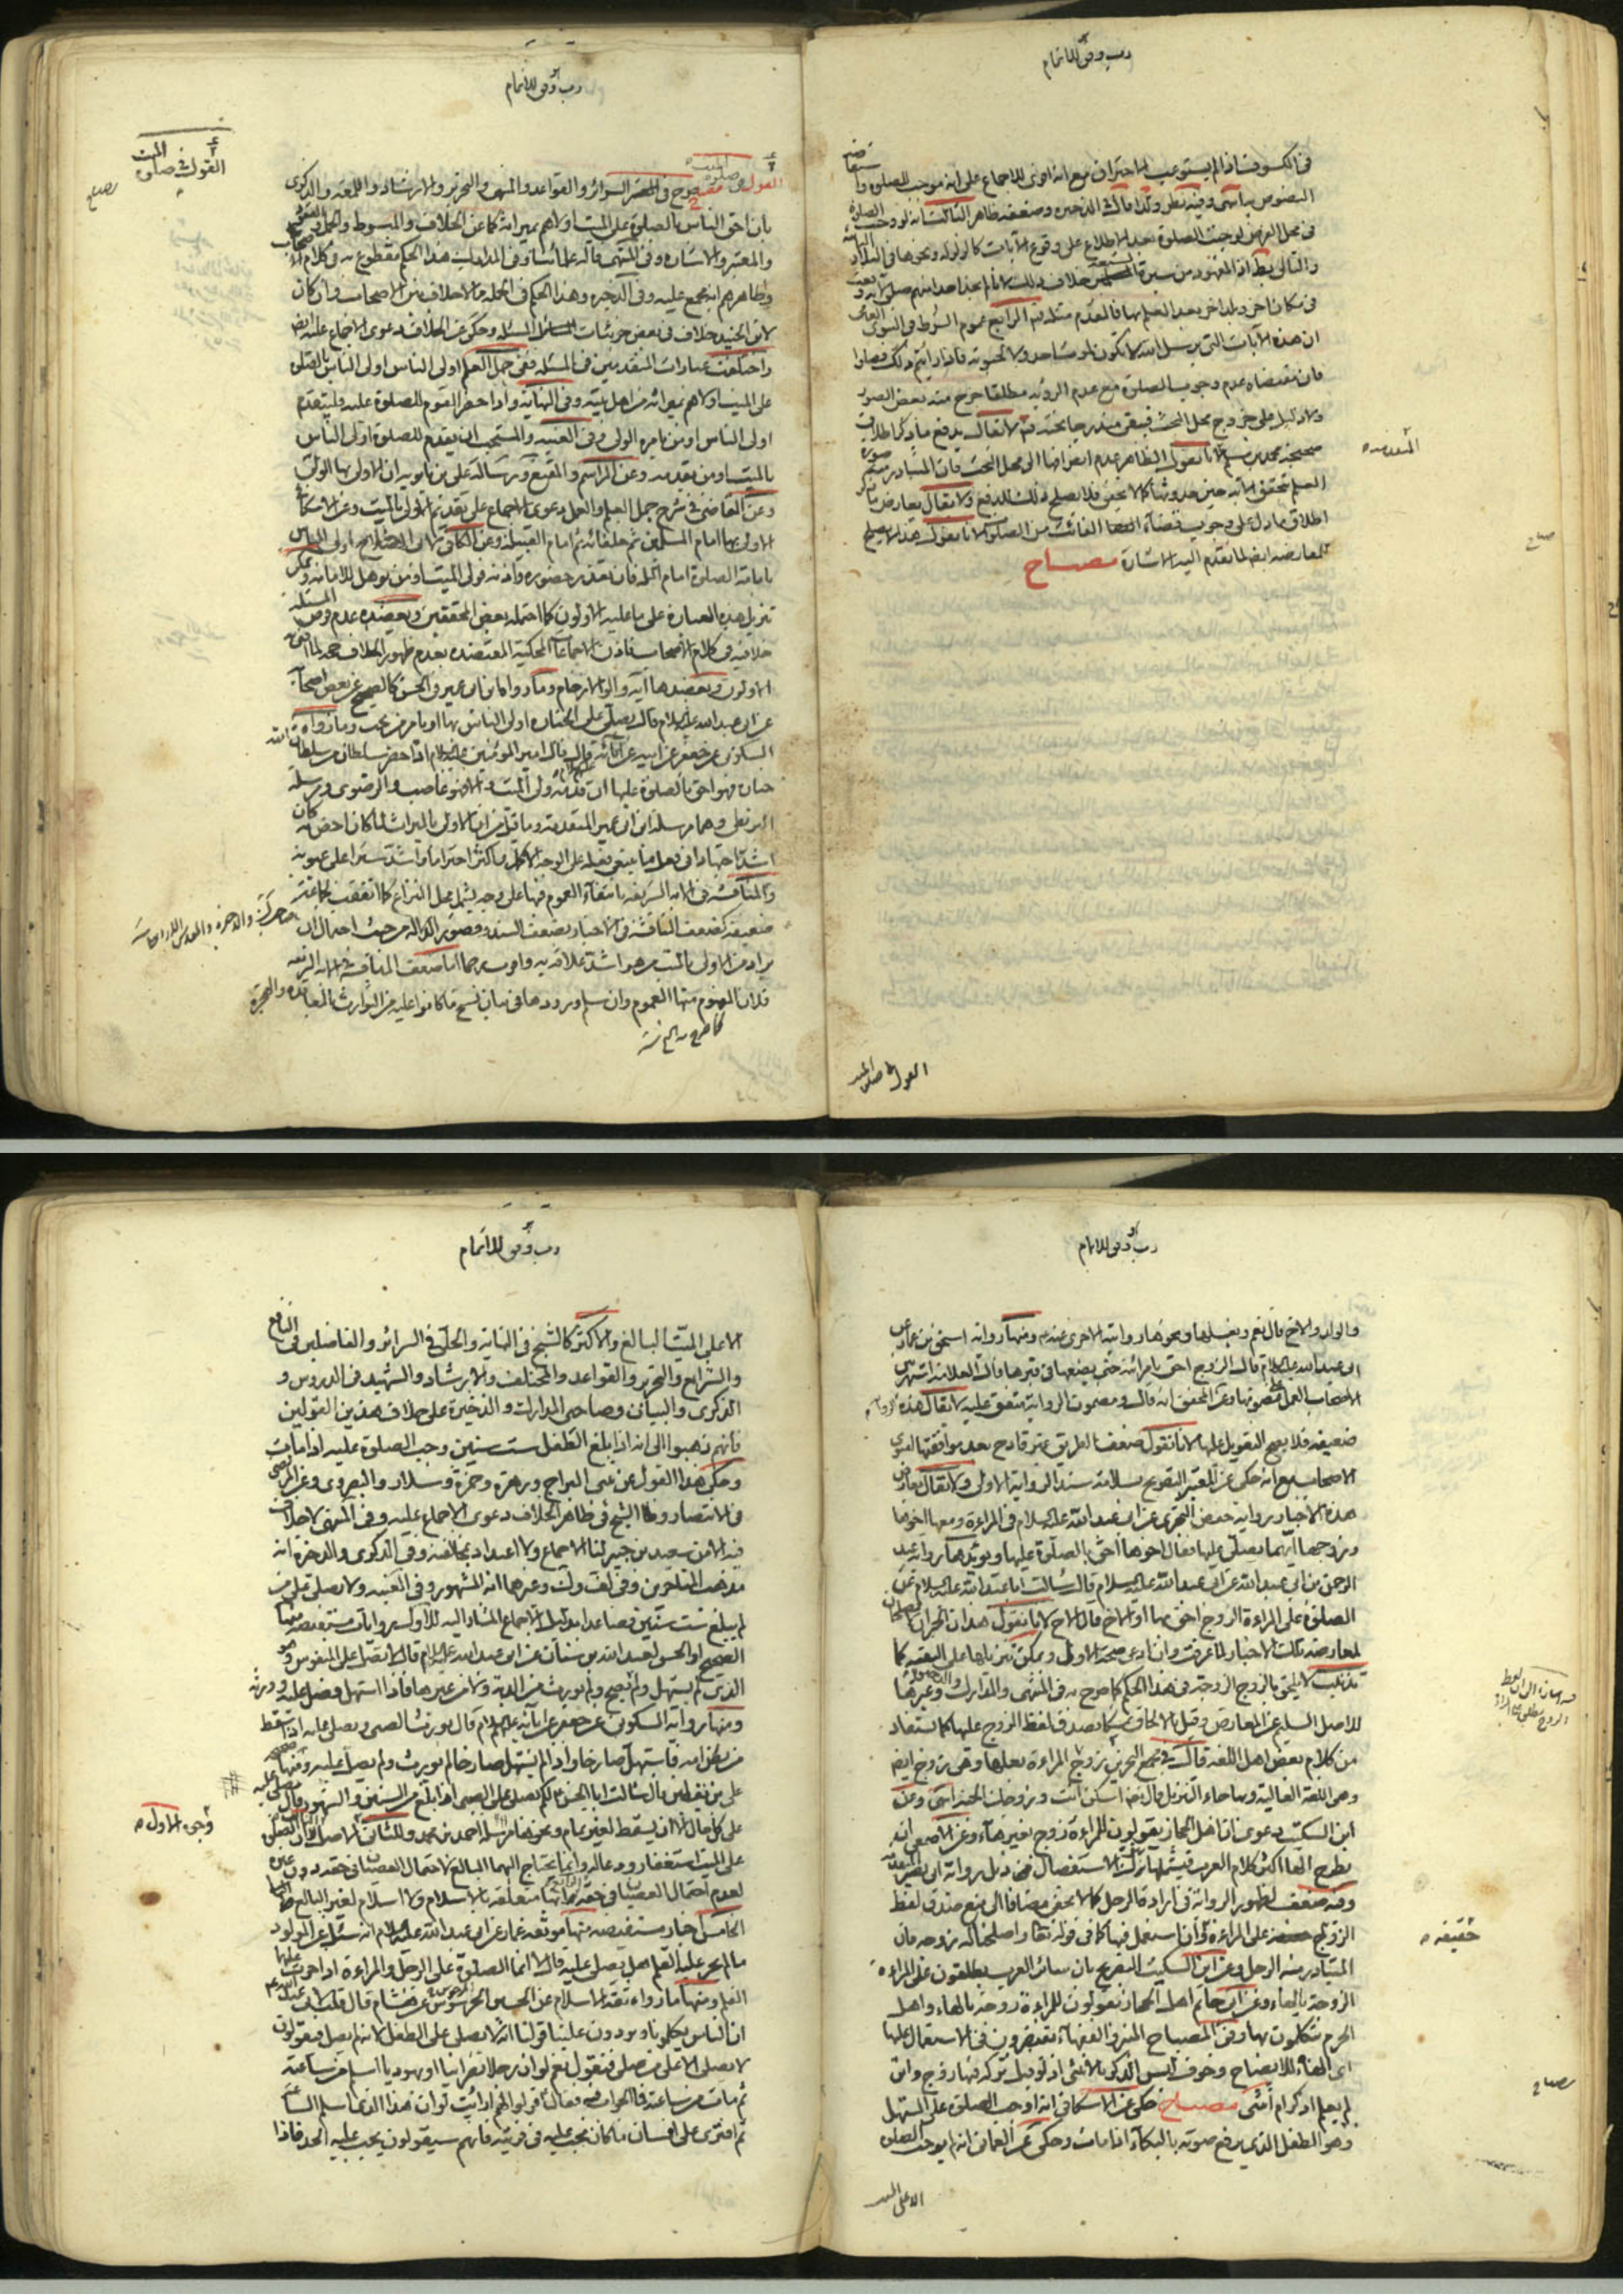 رب وفق للاتمام
في الكسوف اذا لم يستوعب الاحتراق مع انه اولى للاجماع على انه موجب للصلوة
النصوص باسرها وفيه نظر ولذا قال في الذخيرة وضعفه ظاهر الثالث انه لو وجب الصلوة
في محل الفرض لوجبت الصلوة بعد الاطلاع على وقوع الآيات كالزلزلة ونحوها في البلاد
والتالي بط اذ المعهود من سيرة خلاف ذلك لانا لم نجد احدا منهم صلى
في مكان اخر وبلد اخر بعد العلم بها فالمقدم مثله
ان هذه الآيات التي يرسل الله لا تكون لموت احد ولا لحيوته فاذا رايتم ذلك فصلوا
فان مقتضاه عدم وجوب الصلوة مع عدم الرؤية مطلقا خرج منه بعض الصور
ولا دليل على خروج محل البحث فيبقى مندرجا تحته لا يقال يدفع ما ذكر اطلاق
صحيحة محمد بن مسلم لانا نقول الظاهر عدم انصرافها الى محل البحث فان المتبادر منه صورة
العلم بتحقق الآية حين حدوثها كما لا يخفى فلا يصلح ذلك للدفع ولا يقال يعارض ما ذكر
اطلاق ما دل على وجوب قضاء الفائت من الصلوة لانا نقول هذا لا يصلح
للمعارضة ايضا لما تقدم اليه الاشارة مصباح
المتقدمة
مصباح
القول في صلوة الميت
رب وفق للاتمام
القول في صلوة الميت
مصباح
القول في صلوة الميت صرح في السرائر والقواعد والمنتهى والتحرير والارشاد واللمعة والذكرى
بان احق الناس بالصلوة على الميت اولاهم بميراثه كما عن الخلاف والمبسوط
والمعتبر والاشارة وفي المنتهى قاله علمائنا وفي المدارك هذا الحكم مقطوع به في كلام
وظاهرهم انه مجمع عليه وفي الذخيرة وهذا الحكم في الجملة مما لا خلاف بين الاصحاب وان كان
لابن الجنيد خلاف في بعض جزئيات المسئلة وحكى عن الخلاف دعوى الاجماع عليه ايضا
واختلفت عبارات المتقدمين في المسئلة ففي جمل العلم اولى الناس اولى الناس بالصلوة
على الميت اولاهم بميراثه من اهل بيته وفي النهاية واذا حضر القوم للصلوة عليه فليتقدم
اولى الناس او من يامره الولي وفي الغنية والمستحب ان يقدم للصلوة اولى الناس
بالميت او من يقدمه وعن المراسم والمقنع ورسالة علي بن بابويه ان الاولى بها الولي
وعن القاضي في شرح جمل العلم والعمل دعوى الاجماع على تقديم الاولى بالميت وعن الاسكافي
الاولى بها امام المسلمين ثم خلفائه ثم امام القبيلة وعن الكافي لابي الصلاح اولى الناس
بامامة الصلوة امام الملة فان تعذر حضوره واذنه فولي الميت او من يؤهل للامامة
تنزيل هذه العبارة على ما عليه الاولون كما احتمله بعض المحققين ويعضده عدم وصف المسئلة
خلافية في كلام الاصحاب فاذن الاجماعات المحكية المعتضدة بعدم ظهور الخلاف حجة لما ادعى
الاولون ويعضدها اية اولوا الارحام وما رواه ابن ابي عمير في الحسن كالصحيح عن بعض اصحابه
عن ابي عبد الله عليه السلام قال يصلي على الجنازة اولى الناس بها او يامر من يحب وما رواه
السكوني عن جعفر عن ابيه عن آبائه قال قال امير المؤمنين عليه السلام اذا حضر سلطان من سلطان الله
جنازة فهو احق بالصلوة عليها ان قدمه ولي الميت والا فهو غاصب والرضوي ومرسلة
البزنطي وهما مرسلة ابن ابي عمير المتقدمة وما قيل من ان الاولى بالميراث لما كان احض به كان
اشد اجتهادا في فعل ما ينبغي فعله على الوجه الاكمل واكثر احتراما واشد سترا على عيوبه
والمناقشة في الاية الشريفة بانتفاء العموم فيها على وجه يشمل محل النزاع كما اتفقت لجماعة
ضعيفة كضعف المناقشة في الاخبار بضعف السند وقصور الدلالة من حيث احتمال ان
يراد من الاولى بالميت من هو اشد علاقة به واوصى به اما ضعف المناقشة في الاية الشريفة
فلان المفهوم منها العموم وان سلم ورودها في بيان نسخ ما كانوا عليه من التوارث بالمعاقدة والهجرة
كما صرح به
رب وفق للاتمام
والوالد والاخ قال نعم ويغسلها ونحوها روايته الاخرى عنه ومنها رواية اسحق بن عمار عن
ابي عبد الله عليه السلام قال الزوج احق بامرأته حتى يضعها في قبرها قال العلامة اشتهر بين
الاصحاب العمل بمضمونها وعن المحقق انه قال ومضمون الرواية متفق عليه لا يقال هذه الرواية
ضعيفة فلا يصح التعويل عليها لانا نقول ضعف الطريق غير قادح بعد موافقتها لفتوى
الاصحاب مع انه حكى عن المعتبر التصريح بسلامة سند الرواية الاولى ولا يقال يعارض
هذه الاخبار رواية حفص بن البختري عن ابي عبد الله عليه السلام في المراءة ومعها اخوها
وزوجها ايهما يصلي عليها فقال اخوها احق بالصلوة عليها ويؤيدها رواية عبد
الرحمن بن ابي عبد الله عن ابي عبد الله عليه السلام قال سالت ابا عبد الله عليه السلام عن
الصلوة على المراءة الزوج احق بها او الاخ قال الاخ لانا نقول هذان الخبران لا يصلحان
لمعارضة تلك الاخبار لما عرفت وان ادعى صحة الاولى ويمكن تنزيلها على التقية كما
تذنيب لا يلحق بالزوج الزوجة في هذا الحكم كما صرح به في المنتهى والمدارك والذخيرة وغيرها
للاصل السليم عن المعارض وقيل بالالحاق تمسكا بصدق لفظ الزوج عليها كما يستفاد
من كلام بعض اهل اللغة قال في مجمع البحرين زوج المراءة بعلها وهي زوج ايضا
وهي اللغة العالية وبها جاء التنزيل قال تعالى اسكن انت وزوجك الجنة انتهى وعن
ابن السكيت دعوى ان اهل الحجاز يقولون للمراءة زوج بغير هاء وعن الاصمعي انه
يطرح الهاء اكثر كلام العرب فيشملها ترك الاستفصال في ذيل رواية ابي بصير المتقدمة
وفيه ضعف لظهور الرواية في ارادة الرجل كما لا يخفى مضافا الى منع صدق لفظ
الزوج على المراءة وان استعمل فيها كما في قوله تعالى واصلحنا له زوجه فان
المتبادر منه الرجل وعن ابن السكيت التصريح بان سائر العرب يطلقون على المراءة
الزوجة بالهاء وعن ابي حاتم اهل الحجاز يقولون للمراءة زوجة بالهاء واهل
الحرم يتكلمون بها وفي المصباح المنير والفقهاء يقتصرون في الاستعمال عليها
اي الهاء للايضاح وخوف لبس الذكر بالانثى اذ لو قيل تركة فيها زوج وابن
لم يعلم اذكر ام انثى مصباح حكى عن الاسكافي انه اوجب الصلوة على المستهل
وهو الطفل الذي يرفع صوته بالبكاء اذا مات وحكى عن العماني انه لم يوجب الصلوة
حقيقة
مصباح
الا على الميت
رب وفق للاتمام
الا على الميت البالغ والاكثر كالشيخ في النهاية والحلي في السرائر والفاضلين في النافع
والشرايع والتحرير والقواعد والمختلف والارشاد والشهيد في الدروس و
الذكرى والبيان وصاحبي المدارك والذخيرة على خلاف هذين القولين
فانهم ذهبوا الى انه اذا بلغ الطفل ست سنين وجب الصلوة عليه اذا مات
وحكى هذا القول عن بني البراج وزهرة وحمزة وسلار والبصروي وعن المرتضى
في الانتصار والشيخ في ظاهر الخلاف دعوى الاجماع عليه وفي المنتهى لا خلاف
فيه الا من سعيد بن جبير لنا الاجماع ولا اعتداد بمخالفته وفي الذكرى والذخيرة انه
مذهب المتاخرين وفي لف وك وغيرهما انه المشهور وفي الغنية ولا يصلى على من
لم يبلغ ست سنين فصاعدا بدليل الاجماع المشار اليه للاول روايات مستفيضة منها
الصحيح او الحسن لعبد الله بن سنان عن ابي عبد الله عليه السلام قال لا يصلى على المنفوس وهو
الذي لم يستهل ولم يصح ولم يورث من الدية ولا من غيرها فاذا استهل فصل عليه وورثه
ومنها رواية السكوني عن جعفر عن آبائه عليهم السلام قال يورث الصبي ويصلى عليه اذا سقط
من بطن امه فاستهل صارخا واذا لم يستهل صارخا لم يورث ولم يصل عليه ومنها صحيحة
علي بن يقطين قال سالت ابا الحسن عليه السلام لكم يصلى على الصبي اذا بلغ من السنين والشهور قال يصلى عليه
على كل حال الا ان يسقط لغير تمام ونحوها مرسلة احمد بن محمد وللثاني الاصل
على الميت استغفار ودعاء له وانما يحتاج اليهما البالغ لاحتمال العصيان في حقه دون غيره
لعدم احتمال العصيان في حقه
الخامس اخبار مستفيضة منها موثقة عمار عن ابي عبد الله عليه السلام انه سئل عن المولود
ما لم يجر عليه القلم هل يصلى عليه قال لا انما الصلوة على الرجل والمراءة اذا جرى عليهما
القلم ومنها ما رواه ثقة الاسلام عن الحسين الحرسوس عن هشام قال قلت لابي عبد الله
ان الناس يكلمونا ويردون علينا قولنا انه لا يصلى على الطفل لانه لم يصل فيقولون
لا يصلى الا على من صلى فنقول نعم فيقولون ارايتم لو ان رجلا نصرانيا او يهوديا اسلم من ساعته
ثم مات من ساعته فما الجواب فيه فقال قولوا لهم ارايت لو ان هذا الذي اسلم الساعة
ثم افترى على انسان ما كان يجب عليه في فريته فانهم سيقولون يجب عليه الحد فاذا
وجوه الاول